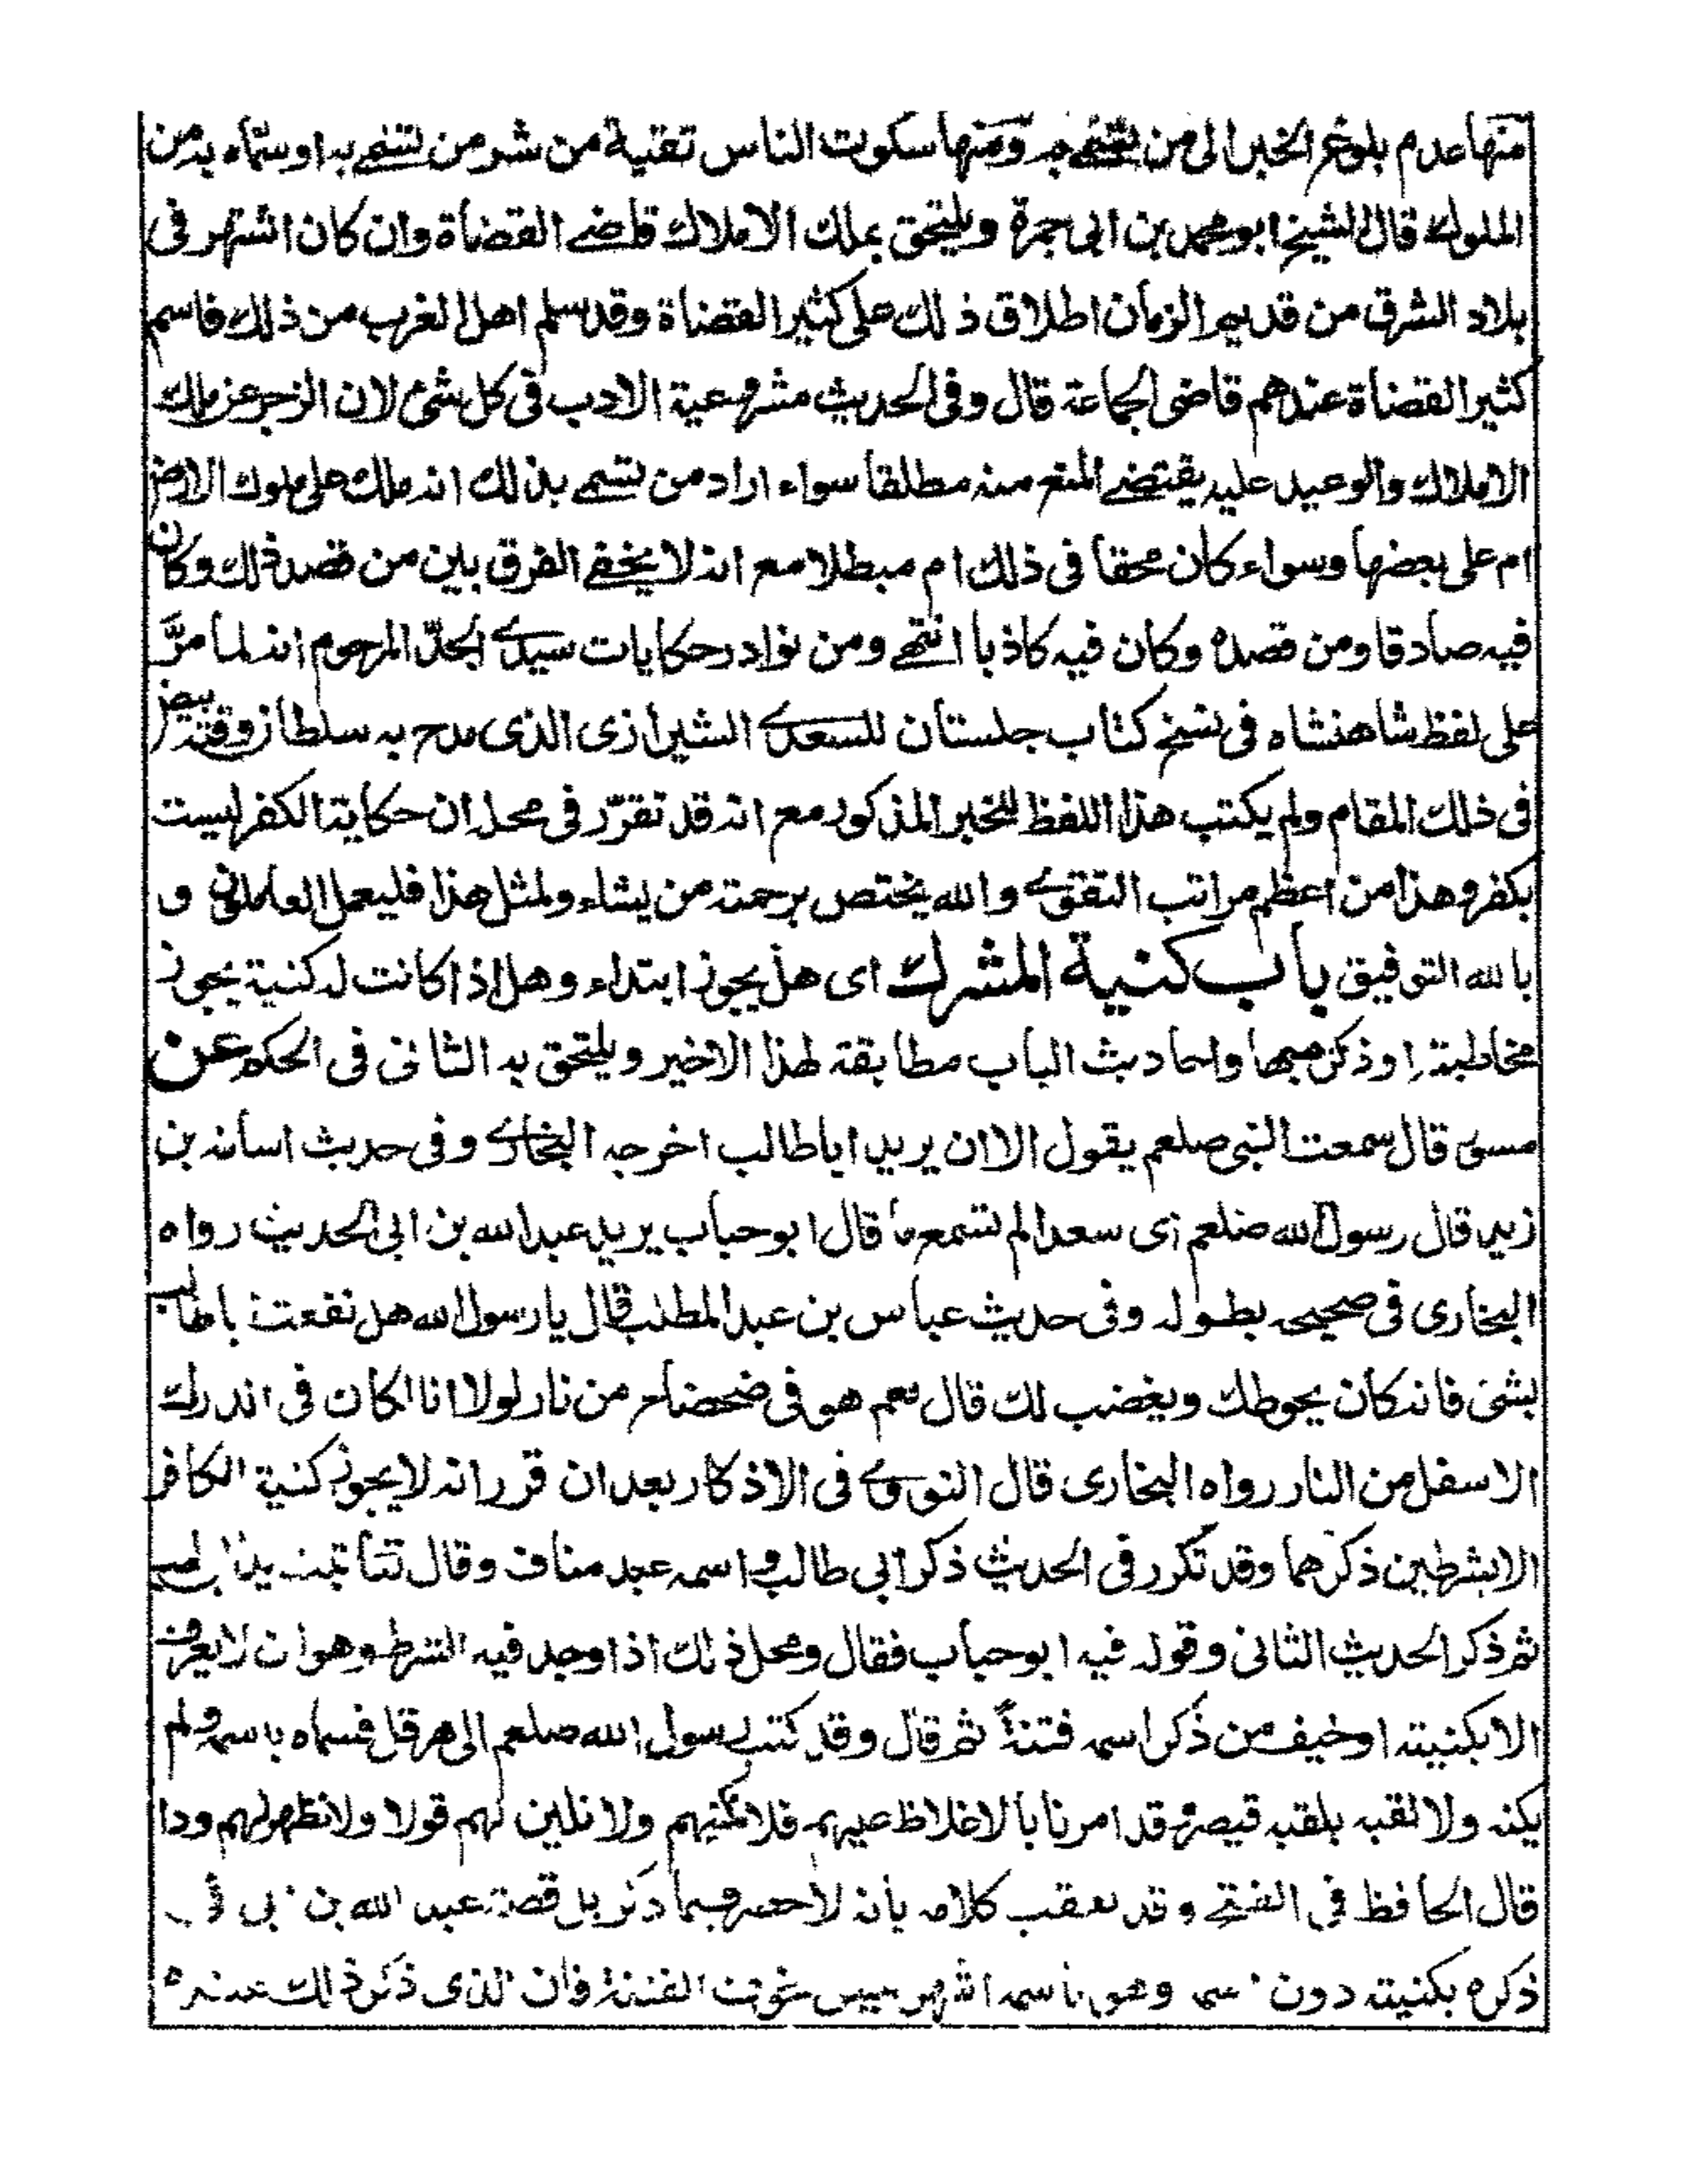 منها عدم بلوغ الخبر الى من يتسمى به ومنها سكوت الناس تقية من شر من تسمى به او سماه به من
الملوك قال الشيخ ابو محمد بن ابى جمرة ويلتحق بملك الاملاك قاضى القضاة وان كان اشتهر فى
بلاد الشرق من قديم الزمان اطلاق ذلك على كثير القضاة وقد سلم اهل الغرب من ذلك فاسم
كثير القضاة عندهم قاضى الجماعة قال وفى الحديث مشروعية الادب فى كل شئ لان الزجر عن ملك
الاملاك والوعيد عليه يقتضى المنع منه مطلقا سواء اراد من تسمى بذلك انه ملك على ملوك الارض
ام على بعضها وسواء كان محقا فى ذلك ام مبطلا مع انه لا يخفى الفرق بين من قصد ذلك وكان
فيه صادقا ومن قصده وكان فيه كاذبا انتهى ومن نوادر حكايات سيدى الجد المرحوم انه لما مرّ
على لفظ شاهنشاه فى نسخ كتاب جلستان للسعدى الشيرازى الذى مدح به سلطان وقته بيض
فى ذلك المقام ولم يكتب هذا اللفظ للخبر المذكور مع انه قد تقرّر فى محله ان حكاية الكفر ليست
بكفر وهذا من اعظم مراتب التقوى والله يختص برحمته من يشاء ولمثل هذا فليعمل العاملون و
بالله التوفيق باب كنية المشرك اى هل يجوز ابتداء وهل اذا كانت له كنية يجوز
مخاطبته او ذكره بها واحاديث الباب مطابقة لهذا الاخير ويلتحق به الثانى فى الحكم عن
مسور قال سمعت النبى صلعم يقول الا ان يريد ابا طالب اخرجه البخارى وفى حديث اسامة بن
زيد قال رسول الله صلعم اى سعد الم تسمع ما قال ابو حباب يريد عبد الله بن ابى الحديث رواه
البخارى فى صحيحه بطوله وفى حديث عباس بن عبد المطلب قال يا رسول الله هل نفعت اباطالب
بشئ فانه كان يحوطك ويغضب لك قال نعم هو فى ضحضاح من نار لولا انا لكان فى الدرك
الاسفل من النار رواه البخارى قال النووى فى الاذكار بعد ان قرر انه لا يجوز كنية الكافر
الا بشرطين ذكرهما وقد تكرر فى الحديث ذكر ابى طالب واسمه عبد مناف وقال تعا تبت يدا ابى لهب
ثم ذكر الحديث الثانى وقوله فيه ابو حباب فقال ومحل ذلك اذا وجد فيه الشرط وهو ان لا يعرف
الا بكنيته او خيف من ذكر اسمه فتنة ثم قال وقد كتب رسول الله صلعم الى هرقل فسماه باسمه ولم
يكنه ولا لقبه بلقبه قيصر وقد امرنا بالاغلاظ عليهم فلا نكنيهم ولا نلين لهم قولا ولا نظهر لهم ودا
قال الحافظ فى الفتح وقد تعقب كلامه بأنه لا حصر فيما ذكر بل قصة عبد الله بن ابى فى
ذكره بكنيته دون اسمه وهو باسمه اشهر ليس لخوف الفتنة فان الذى ذكر ذلك عنده